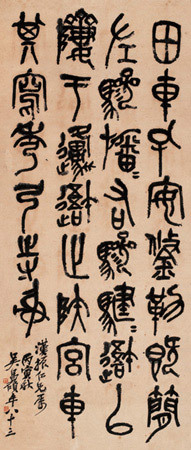 田車孔安鋚勒既簡
左驂旛〻右驂騝〻避以
隮于邍避止陝宮車
其寫秀弓寺射
丙寅秋
吳昌碩年八十三